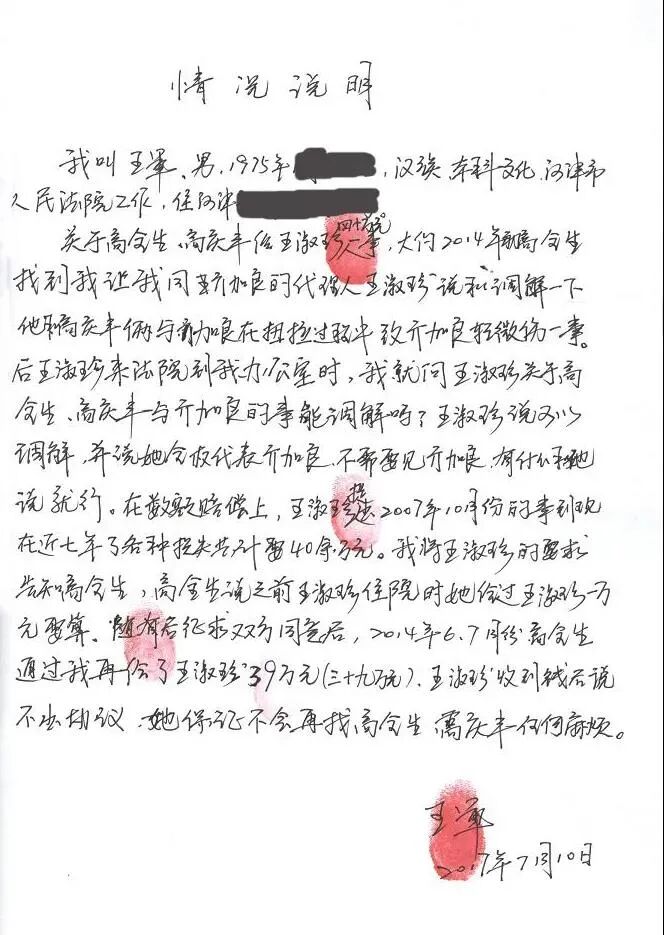 情况说明
我叫王军、男、1975年，汉族、本科文化、河津市
人民法院工作，住河津
四十万元
关于高全生、高庆丰给王淑珍一事，大约2014年高全生
找到我让我同亓加良的代理人王淑珍说和调解一下
他和高庆丰俩与亓加良在扭拉过程中致亓加良轻微伤一事。
后王淑珍来法院到我办公室时，我就问王淑珍关于高
全生、高庆丰与亓加良的事能调解吗？王淑珍说可以
调解，并说她全权代表亓加良、不需要见亓加良、有什么和她
说就行。在数额赔偿上，王淑珍提出2007年10月份的事到现
在近七年了各种损失共计要40余万元。我将王淑珍的要求
告知高全生，高全生说之前王淑珍住院时她给过王淑珍一万
元要算、随后征求双方同意后，2014年6.7月份高全生
通过我再给了王淑珍39万元（三十九万元）、王淑珍收到钱后说
不出协议，她保证不会再找高全生、高庆丰任何麻烦。
王军
2017年7月10日